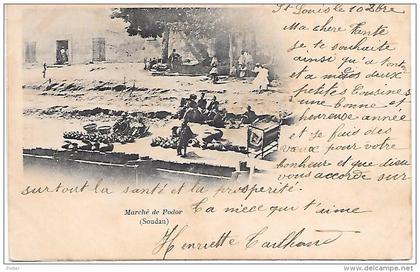 St Louis le 10 Xbre
Ma chère Tante
je te souhaite
ainsi qu'à ton T
et a mes deux
petites Cousines
une bonne et
heureuse année
et je fais des
vœux pour votre
bonheur et que dieu
vous accorde sur
surtout la santé et la prospérité.
Ta nièce qui t'aime
Henriette
Marché de Podor
(Soudan)
delcampe.net